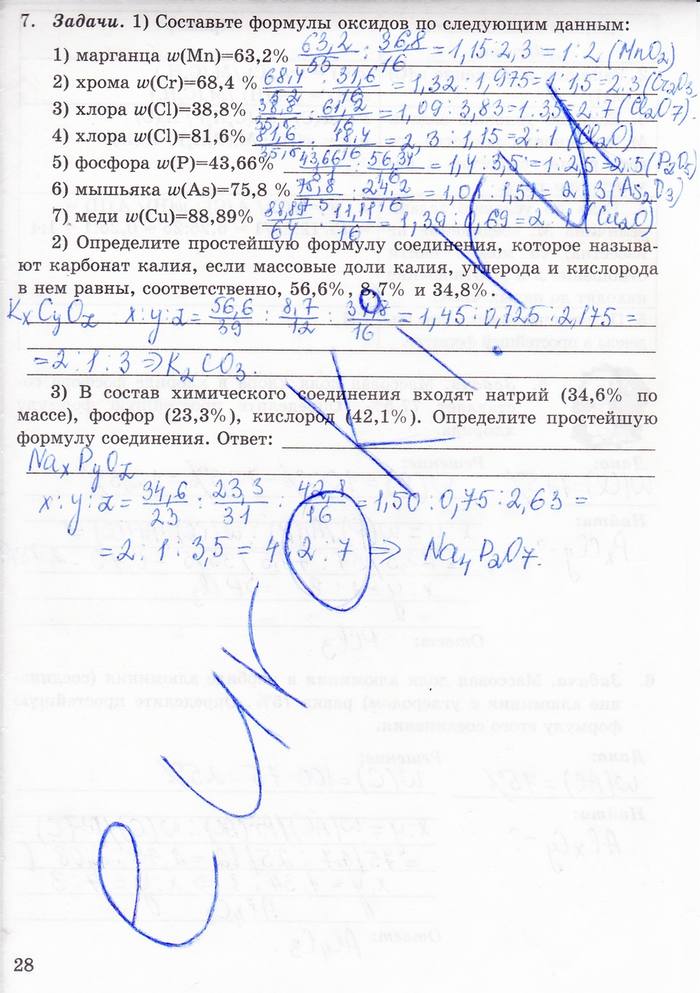 7. Задачи. 1) Составьте формулы оксидов по следующим данным:
1) марганца w(Mn)=63,2% 63,2/55 : 36,8/16 = 1,15:2,3 = 1:2 (MnO₂)
2) хрома w(Cr)=68,4 % 68,4/52 : 31,6/16 = 1,32:1,975=1:1,5=2:3(Cr₂O₃
3) хлора w(Cl)=38,8% 38,8/35,5 : 61,2/16 = 1,09:3,83=1:3,5=2:7(Cl₂O₇).
4) хлора w(Cl)=81,6% 81,6/35,5 : 18,4/16 = 2,3:1,15=2:1 (Cl₂O)
5) фосфора w(P)=43,66% 43,66/31 : 56,34/16 = 1,4:3,5=1:2,5=2:5(P₂O₅)
6) мышьяка w(As)=75,8 % 75,8/75 : 24,2/16 = 1,01:1,51=2:3(As₂O₃)
7) меди w(Cu)=88,89% 88,89/64 : 11,11/16 = 1,39:0,69=2:1(Cu₂O)
2) Определите простейшую формулу соединения, которое называ-
ют карбонат калия, если массовые доли калия, углерода и кислорода
в нем равны, соответственно, 56,6%, 8,7% и 34,8%.
KxCyOz x:y:z = 56,6/39 : 8,7/12 : 34,8/16 = 1,45:0,725:2,175 =
= 2:1:3 ⇒ K₂CO₃.
3) В состав химического соединения входят натрий (34,6% по
массе), фосфор (23,3%), кислород (42,1%). Определите простейшую
формулу соединения. Ответ:
NaxPyOz
x:y:z = 34,6/23 : 23,3/31 : 42,1/16 = 1,50:0,75:2,63 =
= 2:1:3,5 = 4:2:7 ⇒ Na₄P₂O₇.
euroki.
28